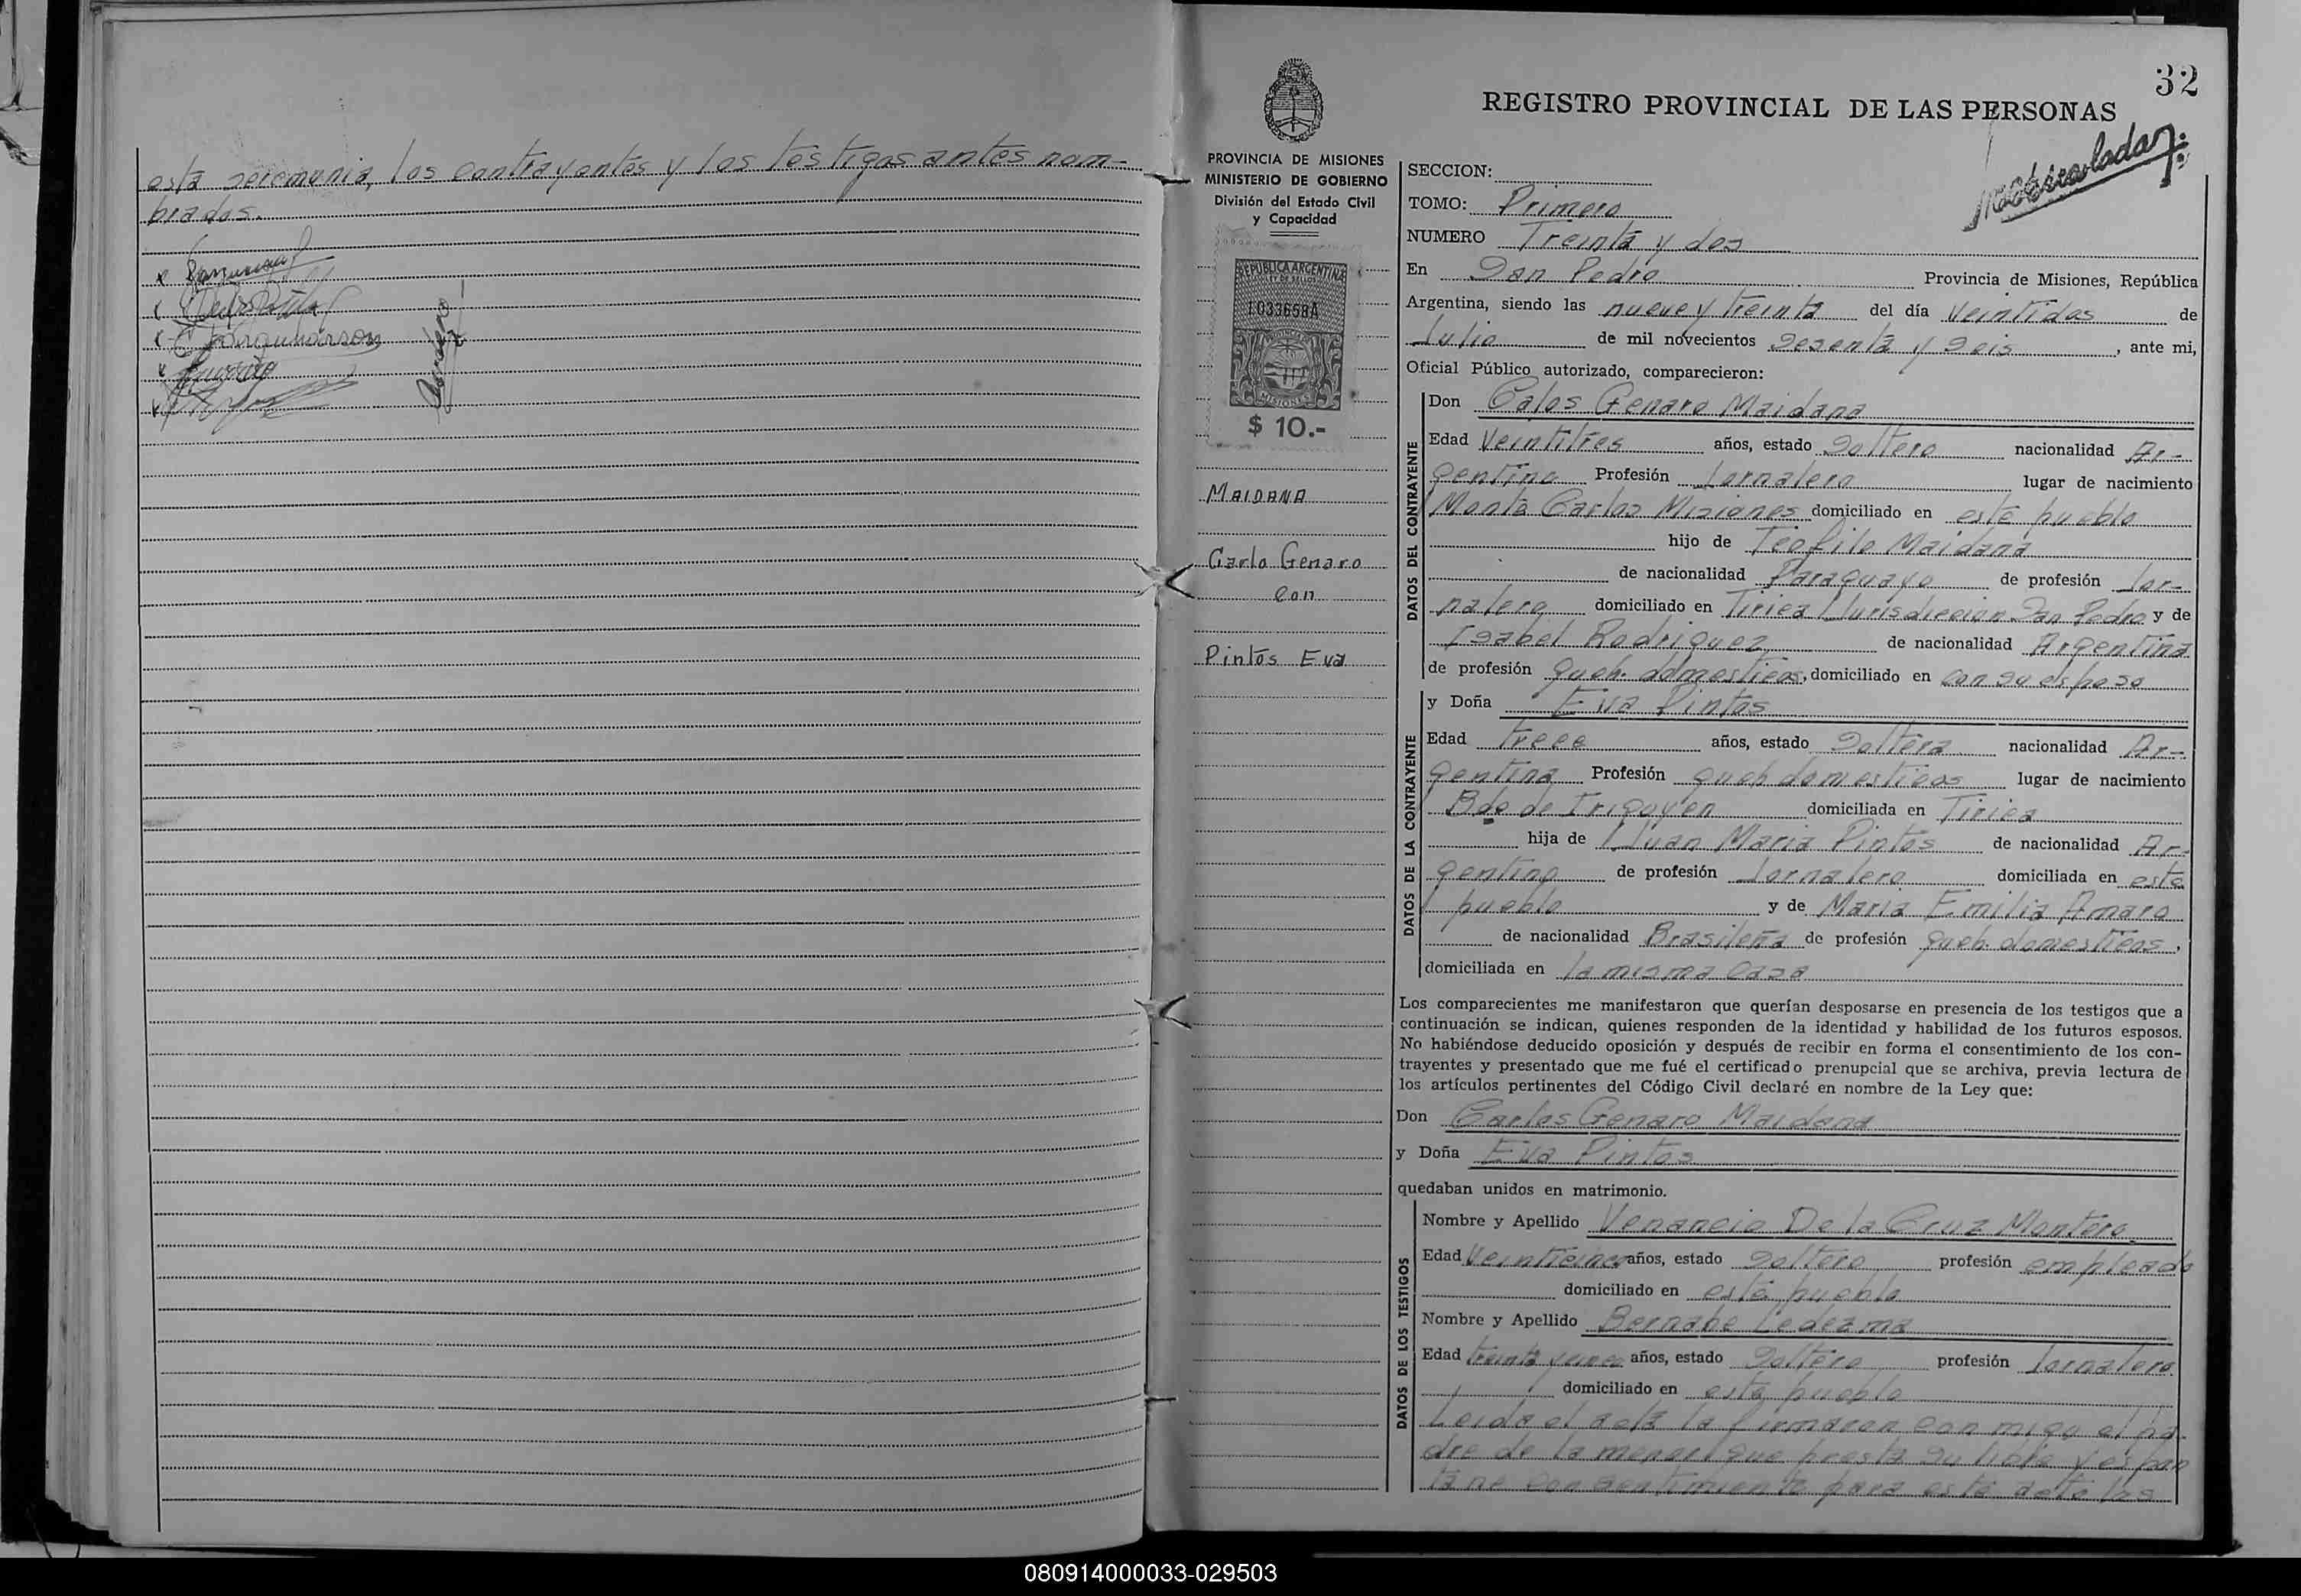 esta seremonia, los contrayentes y los testigos antes nom-
brados.
32
REGISTRO PROVINCIAL DE LAS PERSONAS
PROVINCIA DE MISIONES
MINISTERIO DE GOBIERNO
División del Estado Civil
y Capacidad
REPUBLICA ARGENTINA
LEY DE SELLOS
1033658A
MISIONES
$ 10.-
MAIDANA
Carlo Genaro
con
Pintos Eva
SECCION:
TOMO: Primero
NUMERO Treinta y dos
En San Pedro Provincia de Misiones, República
Argentina, siendo las nueve y treinta del día veintidos de
Julio de mil novecientos sesenta y seis, ante mi,
Oficial Público autorizado, comparecieron:
DATOS DEL CONTRAYENTE
Don Calos Genaro Maidana
Edad Veintitres años, estado soltero nacionalidad Ar-
gentino Profesión Jornalero lugar de nacimiento
Monte Carlos Misiones domiciliado en este pueblo
hijo de Teofilo Maidana
de nacionalidad Paraguayo de profesión Jor-
nalero domiciliado en Tirica Jurisdiccion San Pedro y de
Isabel Rodriguez de nacionalidad Argentina
de profesión queh. domesticos, domiciliado en con su esposo
DATOS DE LA CONTRAYENTE
y Doña Eva Pintos
Edad trece años, estado soltera nacionalidad Ar-
gentina Profesión queh domesticos lugar de nacimiento
Bdo de Irigoyen domiciliada en Tirica
hija de Juan Maria Pintos de nacionalidad Ar-
gentino de profesión Jornalero domiciliada en este
pueblo y de Maria Emilia Amaro
de nacionalidad Brasileña de profesión queh domesticos,
domiciliada en la misma casa
Los comparecientes me manifestaron que querían desposarse en presencia de los testigos que a
continuación se indican, quienes responden de la identidad y habilidad de los futuros esposos.
No habiéndose deducido oposición y después de recibir en forma el consentimiento de los con-
trayentes y presentado que me fué el certificado prenupcial que se archiva, previa lectura de
los artículos pertinentes del Código Civil declaré en nombre de la Ley que:
Don Carlos Genaro Maidana
y Doña Eva Pintos
quedaban unidos en matrimonio.
DATOS DE LOS TESTIGOS
Nombre y Apellido Venancio De la Cruz Montero
Edad Veinticinco años, estado soltero profesión empleado
domiciliado en este pueblo
Nombre y Apellido Bernabe Ledezma
Edad treinta y cinco años, estado soltero profesión Jornalero
domiciliado en este pueblo
Leida el acta la firmaron con migo el pa-
dre de la menor que presta su libre y espon
tane consentimiento para este acto los
080914000033-029503